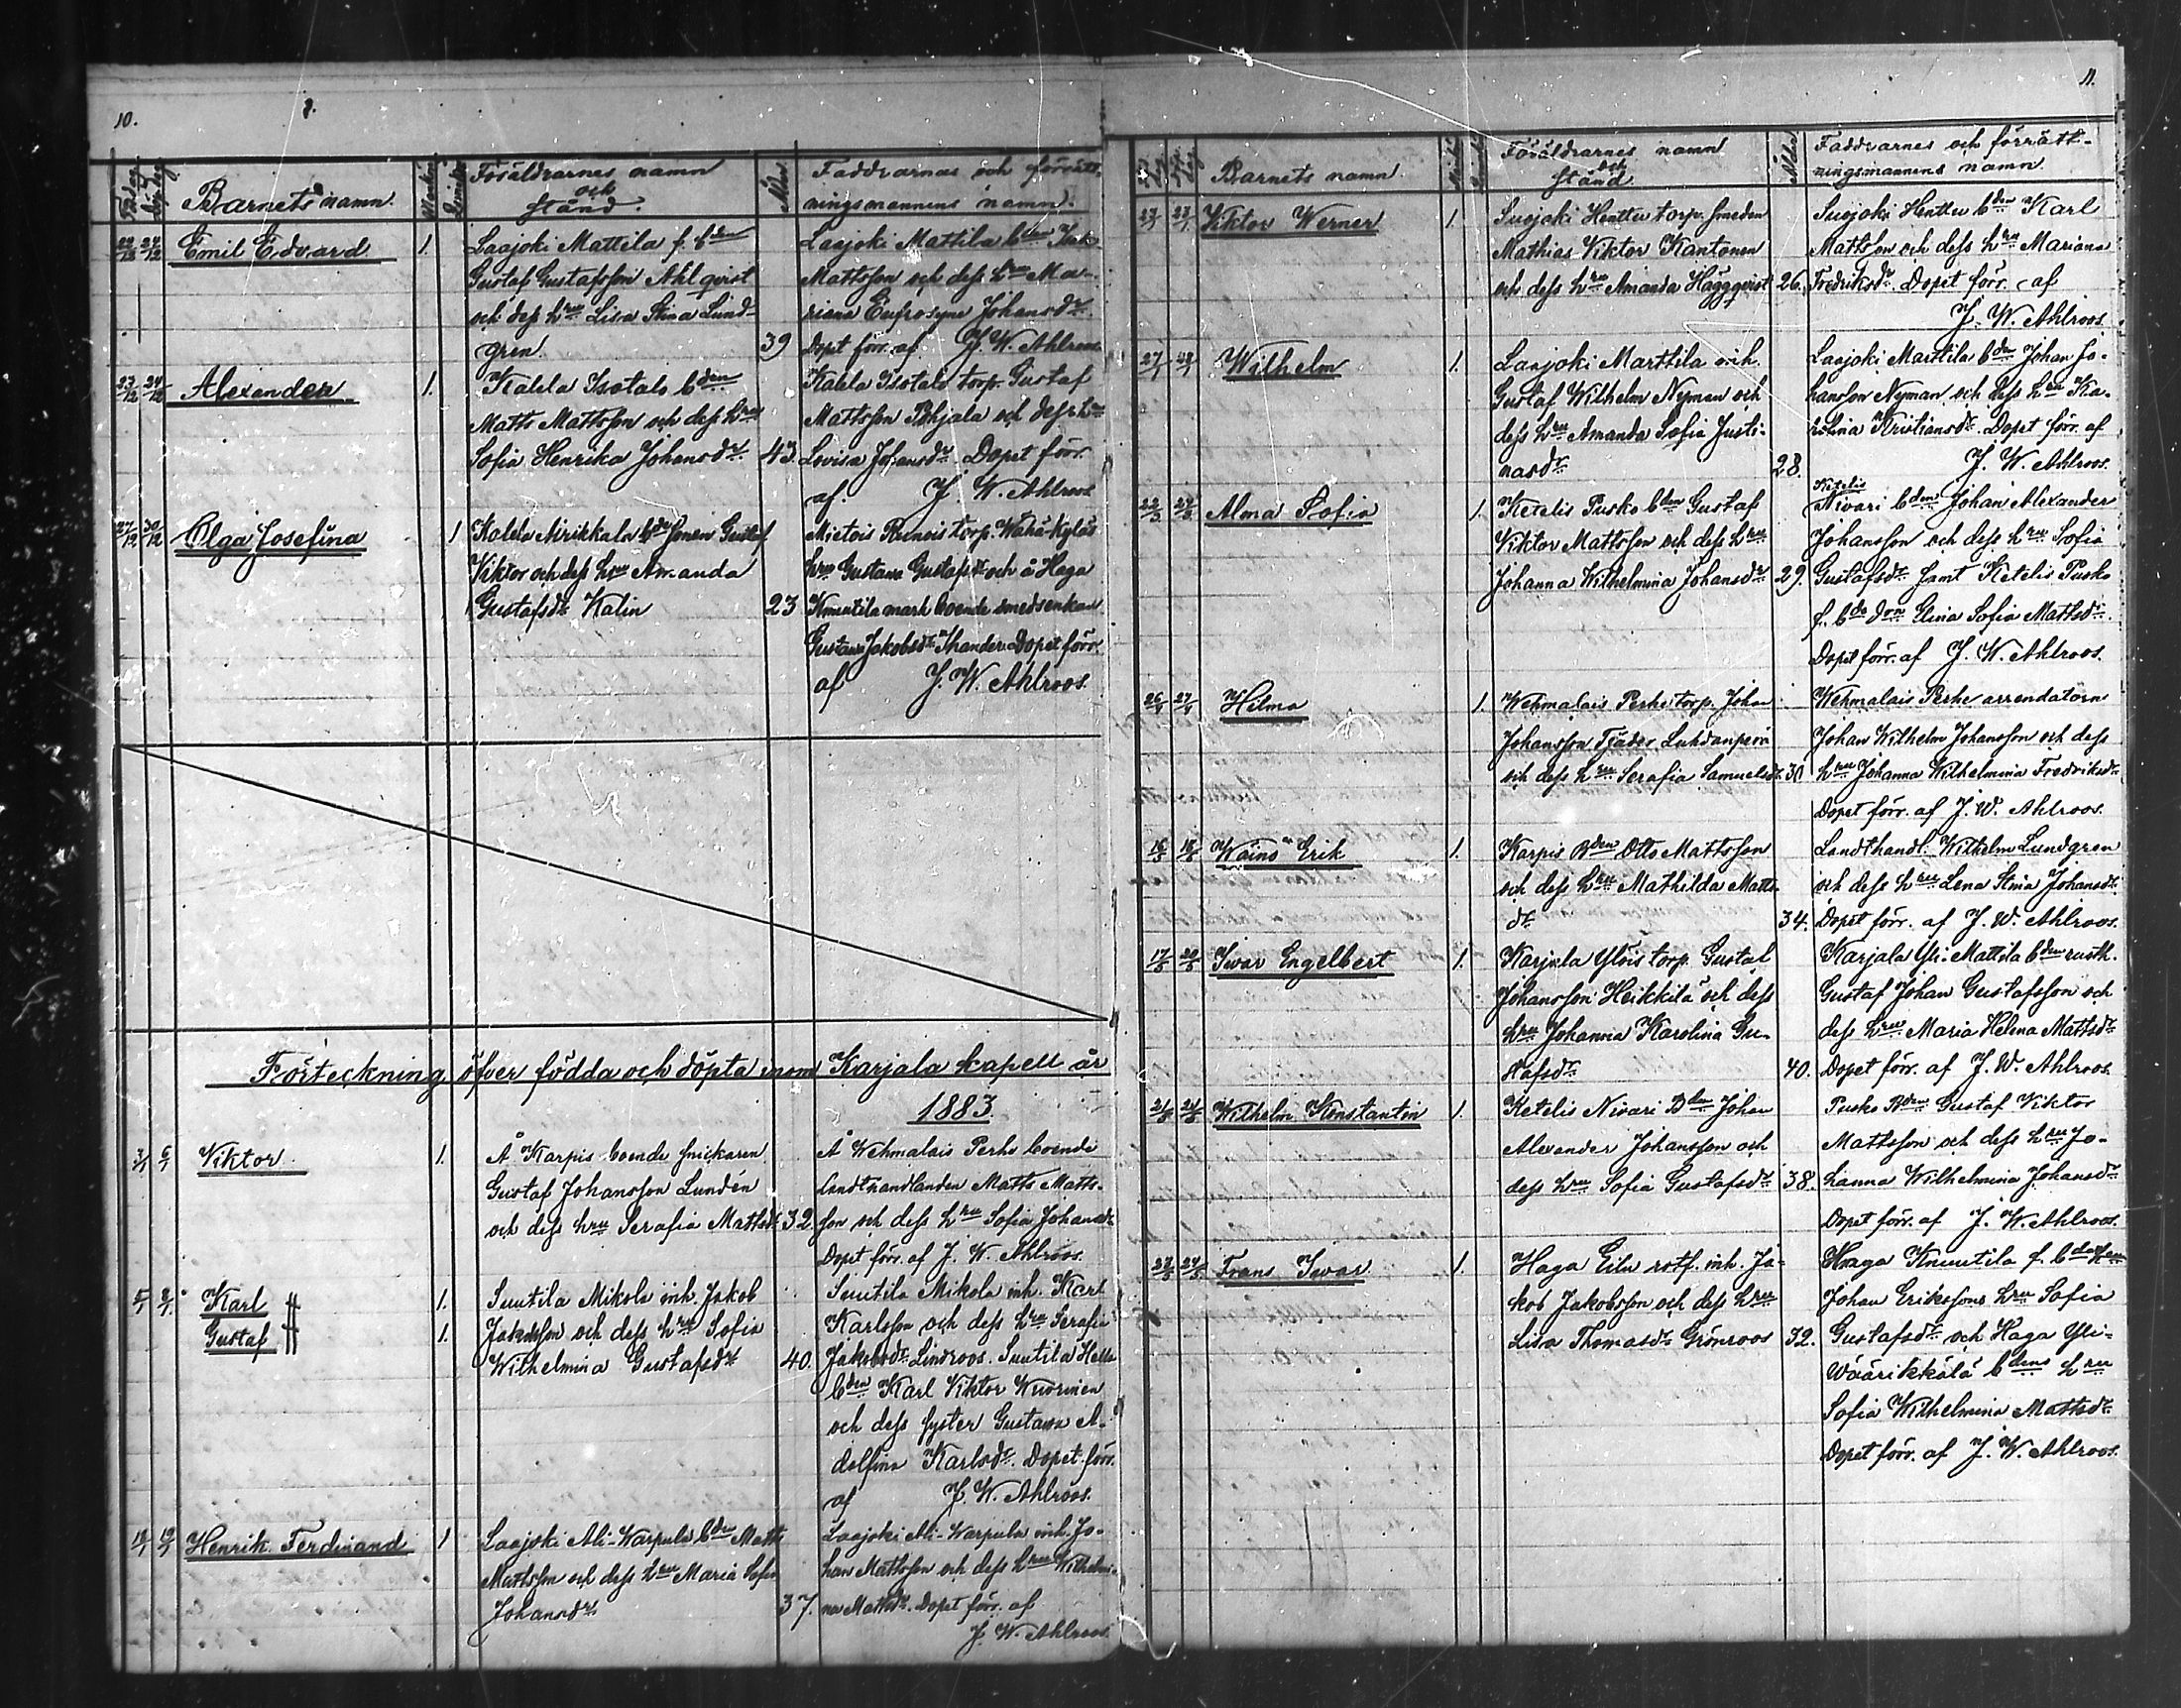 10.
Barnets namn.
Föräldrarnes namn
och
stånd.
Ålder
Faddrarnas och förrätt-
ningsmannens namn.
22/12 27/12 Emil Edvard 1.
Laajoki Mattila f. bden
Gustaf Gustafsson Ahlqvist
och dess hru Lisa Stina Lund-
gren 39
Laajoki Mattila bden
Mattsson och dess hru Ma-
riana Eufrosyne Johansdr.
Dopet förr. af J. W. Ahlroos
23/12 24/12 Alexander 1.
Kalela Isotalo bden
Matts Mattsson och dess hru
Sofia Henrika Johansdr. 43
Kalela Isotalo torp. Gustaf
Mattsson Pohjala och dess hru
Lovisa Johansdr. Dopet förr.
af J. W. Ahlroos
27/12 30/12 Olga Josefina 1
Kalela bde sonen Gustaf
Viktor och dess hru Amanda
Gustafsdr. Kalin 23
Mietois torp. Wähä-Kyläs
hru Gustava Gustafsdr. och å Haga
Knuutila mark boende smedsenkan
Gustava Jakobsdr. Thander. Dopet förr.
af J. W. Ahlroos.
Förteckning öfver födda och döpta inom Karjala kapell år
1883.
3/1 6/1 Viktor. 1.
Å Karpis boende snickaren
Gustaf Johansson Lundén
och dess hru Serafia Mattsdr. 32.
Å Wehmalais Perhe boende
landthandlanden Matts Matts-
son och dess hru Sofia Johansdr.
Dopet förr. af J. W. Ahlroos.
5/1 8/1. Karl 1.
Gustaf 1.
Suutila Mikola inh. Jakob
Jakobsson och dess hru Sofia
Wilhelmina Gustafsdr. 40.
Suutila Mikola inh. Karl
Karlsson och dess hru Serafia
Jakobsdr. Lindroos. Suutila
bden Karl Viktor Wuorinen
och dess syster Gustava A-
dolfina Karlsdr. Dopet förr.
af J. W. Ahlroos.
Henrik Ferdinand 1
Laajoki Ali-Warpula bden Matts
Mattsson och dess hru Maria Sofia
Johansdr. 37.
Laajoki Ali-Warpula inh. Jo-
han Mattsson och dess hru Wilhelmi-
na Mattsdr. Dopet förr. af
J. W. Ahlroos.
11.
Barnets namn.
Föräldrarnes namn
och
stånd.
Ålder
Faddrarnes och förrätt-
ningsmannens namn.
Viktor Werner 1.
Suojoki Henttu torp. smeden
Mathias Viktor Kantonen
och dess hru Amanda Häggqvist 26.
Suojoki Henttu bden Karl
Mattsson och dess hru Mariana
Fredriksdr. Dopet förr. af
J. W. Ahlroos.
27/1 28/1 Wilhelm 1.
Laajoki Marttila inh.
Gustaf Wilhelm Nyman och
dess hru Amanda Sofia Justi-
nasdr. 28.
Laajoki Marttila bden Johan Jo-
hansson Nyman och dess hru Ka-
rolina Kristiansdr. Dopet förr. af
J. W. Ahlroos.
Alma Sofia 1.
Ketelis Pusko bden Gustaf
Viktor Mattsson och dess hru
Johanna Wilhelmina Johansdr. 29.
Ketelis
Nivari bden Johan Alexander
Johansson och dess hru Sofia
Gustafsdr. samt Ketelis Pusko
f. bde don Elina Sofia Mattsdr.
Dopet förr. af J. W. Ahlroos.
26/4 27/4 Hilma 1.
Wehmalais Perhe torp. Johan
Johansson Tjäder Luhdanperä
och dess hru Serafia Samuelsdr. 30
Wehmalais Perhe arrendatorn
Johan Wilhelm Johansson och dess
hru Johanna Wilhelmina Fredriksdr.
Dopet förr. af J. W. Ahlroos.
16/5 18/5 Wäinö Erik 1.
Karpis Bden Otto Mattsson
och dess hru Mathilda Matts-
dr. 34.
Landthandl. Wilhelm Lundgren
och dess hru Lena Stina Johansdr.
Dopet förr. af J. W. Ahlroos.
17/5 20/5 Iwar Engelbert 1.
Karjala Ylöis torp. Gustaf
Johansson Heikkilä och dess
hru Johanna Karolina Gu-
stafsdr. 40.
Karjala Yli-Mattila bden rusth.
Gustaf Johan Gustafsson och
dess hru Maria Helena Mattsdr.
Dopet förr. af J. W. Ahlroos.
21/5 24/5 Wilhelm Konstantin 1.
Ketelis Nivari Bden Johan
Alexander Johansson och
dess hru Sofia Gustafsdr. 38.
Pusko Bden Gustaf Viktor
Mattsson och dess hru Jo-
hanna Wilhelmina Johansdr.
Dopet förr. af J. W. Ahlroos.
Frans Iwar 1.
Haga Eilu rotf. inh. Ja-
kob Jakobsson och dess hru
Lisa Thomasdr. Grönroos 32.
Haga Knuutila f. bden
Johan Erikssons hru Sofia
Gustafsdr. och Haga Yli-
Wäärikkälä bdens hru
Sofia Wilhelmina Mattsdr.
Dopet förr. af J. W. Ahlroos.